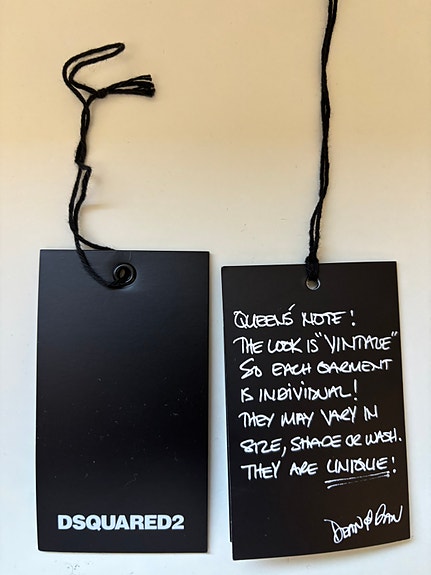 DSQUARED2
QUEENS' NOTE!
THE LOOK IS "VINTAGE"
SO EACH GARMENT
IS INDIVIDUAL!
THEY MAY VARY IN
SIZE, SHADE OR WASH.
THEY ARE UNIQUE!
DEAN & DAN